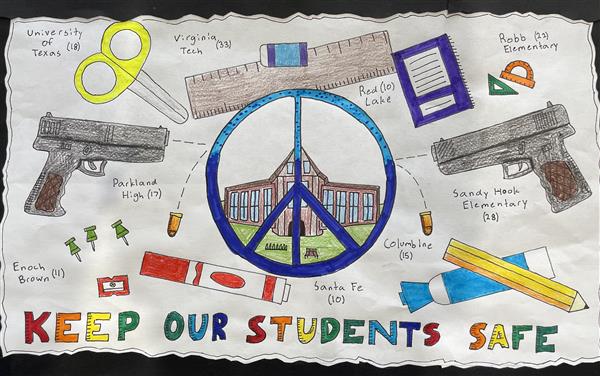 University
of
Texas (18)
Virginia
Tech (33)
Robb (22)
Elementary
Red (10)
Lake
Parkland
High (17)
Sandy Hook
Elementary
(28)
Enoch
Brown (11)
Columbine
(15)
Santa Fe
(10)
KEEP OUR STUDENTS SAFE